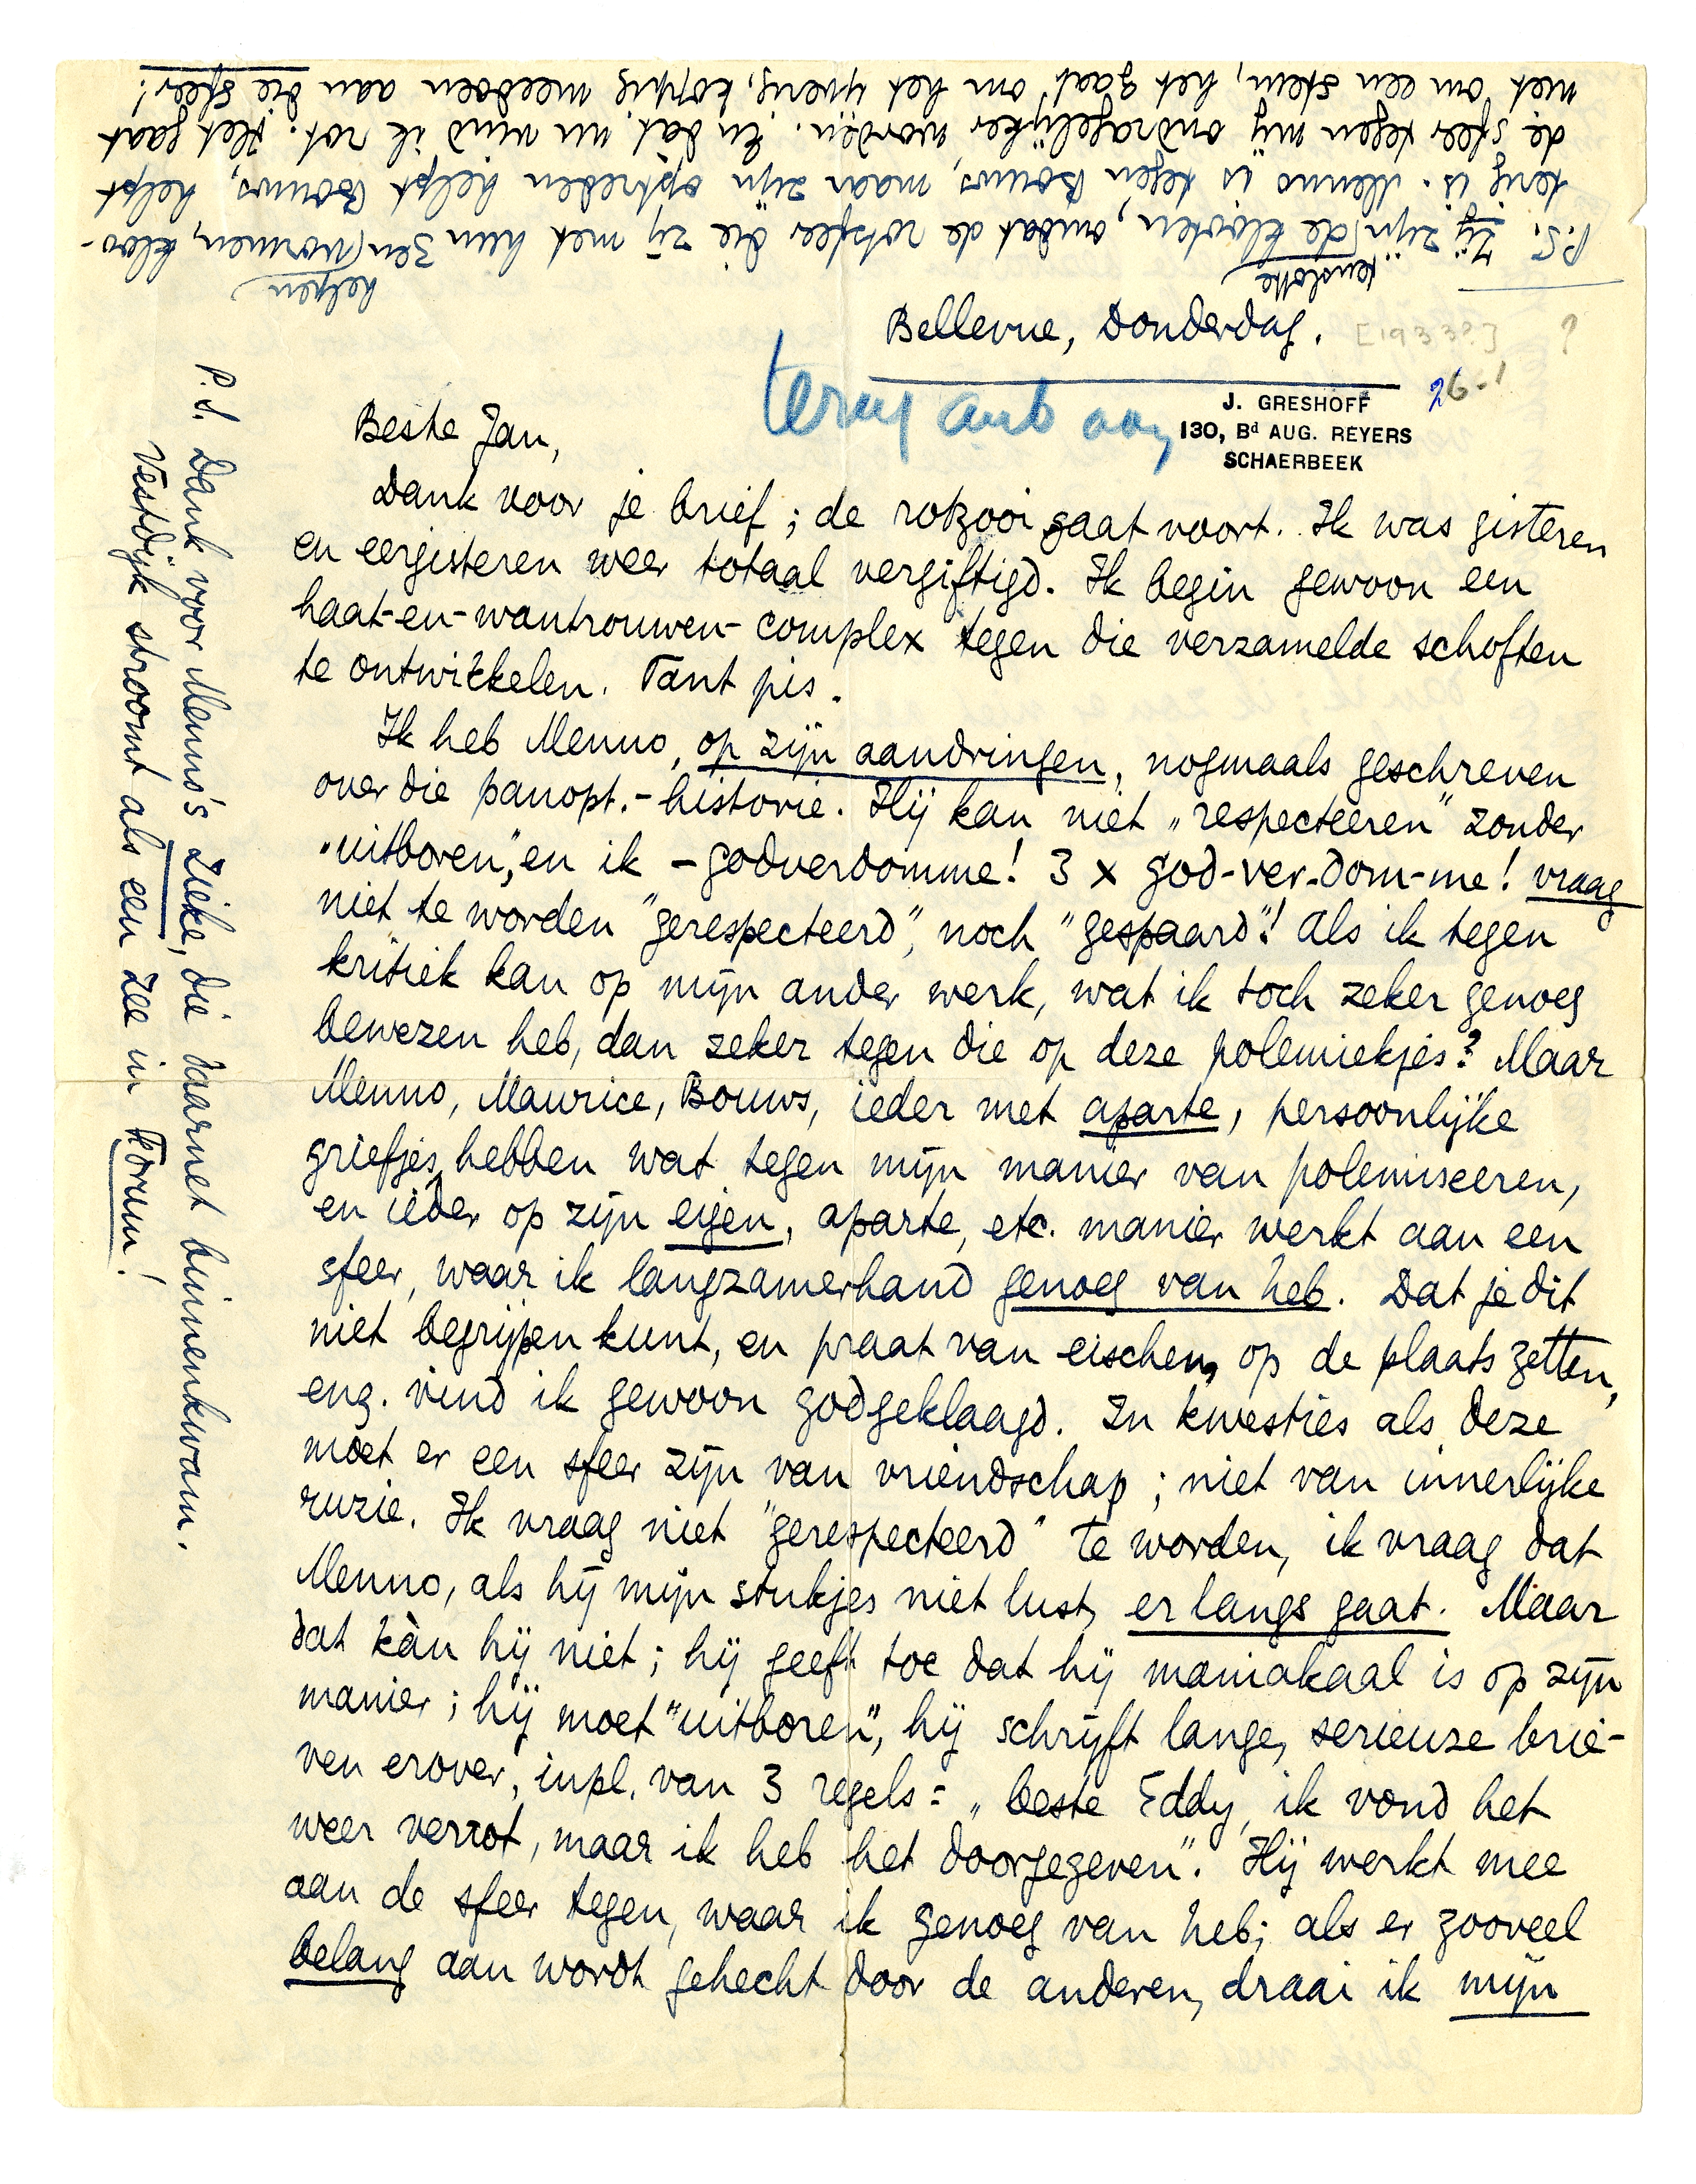 Bellevue, Donderdag.
[1933?]
?
26-1
terug aub aan
J. GRESHOFF
130, Bd AUG. REYERS
SCHAERBEEK
Beste Jan,
Dank voor je brief; de rotzooi gaat voort. Ik was gisteren
en eergisteren weer totaal vergiftigd. Ik begin gewoon een
haat-en-wantrouwen-complex tegen die verzamelde schoften
te ontwikkelen. Tant pis.
Ik heb Menno, op zijn aandringen, nogmaals geschreven
over die panopt.-historie. Hij kan niet „respecteeren" zonder
"uitboren", en ik – godverdomme! 3 x god-ver-dom-me! vraag
niet te worden "gerespecteerd", noch "gespaard"! Als ik tegen
kritiek kan op mijn ander werk, wat ik toch zeker genoeg
bewezen heb, dan zeker tegen die op deze polemiekjes? Maar
Menno, Maurice, Bouws, ieder met aparte, persoonlijke
griefjes, hebben wat tegen mijn manier van polemiseeren,
en ieder op zijn eigen, aparte, etc. manier werkt aan een
sfeer, waar ik langzamerhand genoeg van heb. Dat je dit
niet begrijpen kunt, en praat van eischen, op de plaats zetten,
enz. vind ik gewoon godgeklaagd. In kwesties als deze
moet er een sfeer zijn van vriendschap; niet van innerlijke
ruzie. Ik vraag niet "gerespecteerd" te worden, ik vraag dat
Menno, als hij mijn stukjes niet lust, er langs gaat. Maar
dat kàn hij niet; hij geeft toe dat hij maniakaal is op zijn
manier; hij moet "uitboren", hij schrijft lange, serieuze brie-
ven erover, inpl. van 3 regels: „beste Eddy, ik vond het
weer verrot, maar ik heb het doorgegeven". Hij werkt mee
aan de sfeer tegen, waar ik genoeg van heb; als er zooveel
belang aan wordt gehecht door de anderen, draai ik mijn
P.S. Dank voor Menno's zieke, die daarnet binnenkwam.
Vestdijk stroomt als een zee in Forum!
P.S. Zij zijn tenslotte de klooten, omdat de rotsfeer die zij met hun 3en helpen vormen, kloo-
terig is. Menno is tegen Bouws, maar zijn optreden helpt Bouws, helpt
de sfeer tegen mij ondragelijker worden. En dat nu vind ik rot. Het gaat
niet om een stem, het gaat om het ijverig, koppig meedoen aan die sfeer!